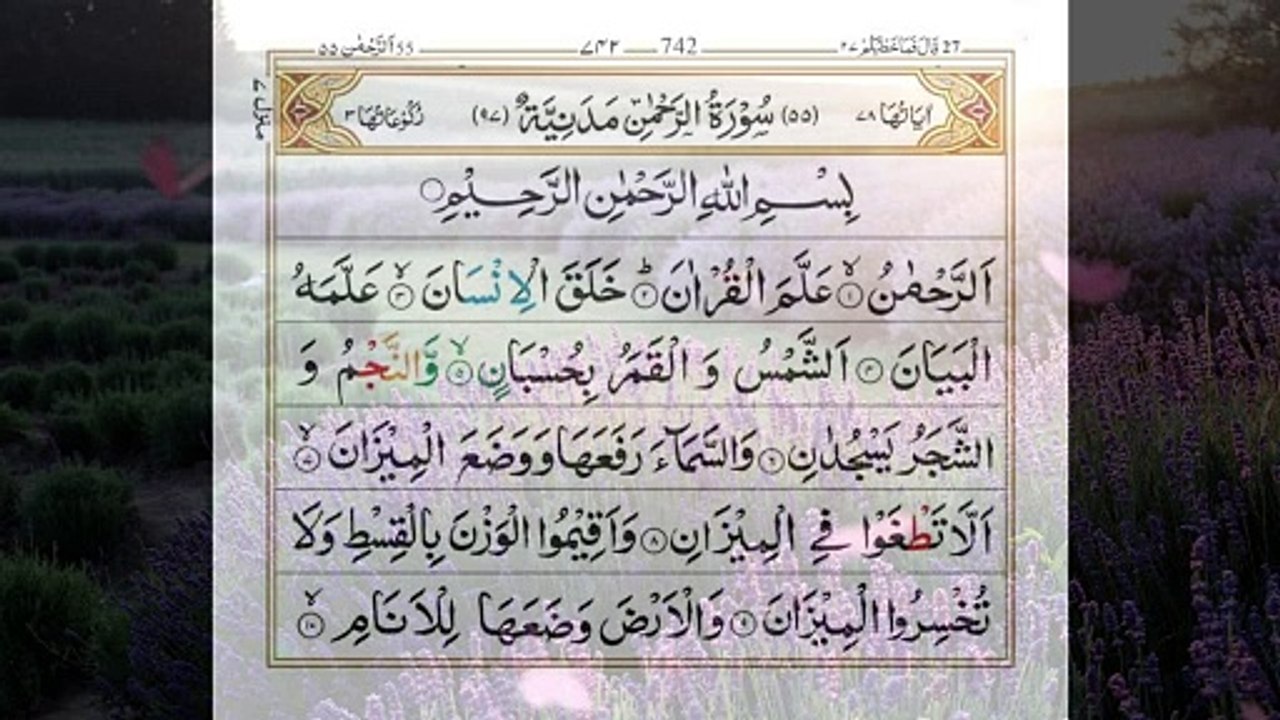 اَلرَّحْمٰن ٥٥ 55 ٧٤٢ 742 قَالَ فَمَا خَطْبُكُمْ ٢٧ 27
اٰيَاتُهَا ٧٨ (٥٥) سُوْرَةُ الرَّحْمٰنِ مَدَنِيَّةٌ (٩٧) رُكُوْعَاتُهَا ٣
بِسْمِ اللّٰهِ الرَّحْمٰنِ الرَّحِيْمِ
اَلرَّحْمٰنُ ۙ﴿١﴾ عَلَّمَ الْقُرْاٰنَ ؕ﴿٢﴾ خَلَقَ الْاِنْسَانَ ۙ﴿٣﴾ عَلَّمَهُ
الْبَيَانَ ﴿٤﴾ اَلشَّمْسُ وَ الْقَمَرُ بِحُسْبَانٍ ۙ﴿٥﴾ وَّالنَّجْمُ وَ
الشَّجَرُ يَسْجُدٰنِ ﴿٦﴾ وَالسَّمَآءَ رَفَعَهَا وَ وَضَعَ الْمِيْزَانَ ۙ﴿٧﴾
اَلَّا تَطْغَوْا فِي الْمِيْزَانِ ﴿٨﴾ وَاَقِيْمُوا الْوَزْنَ بِالْقِسْطِ وَلَا
تُخْسِرُوا الْمِيْزَانَ ﴿٩﴾ وَالْاَرْضَ وَضَعَهَا لِلْاَنَامِ ۙ﴿١٠﴾